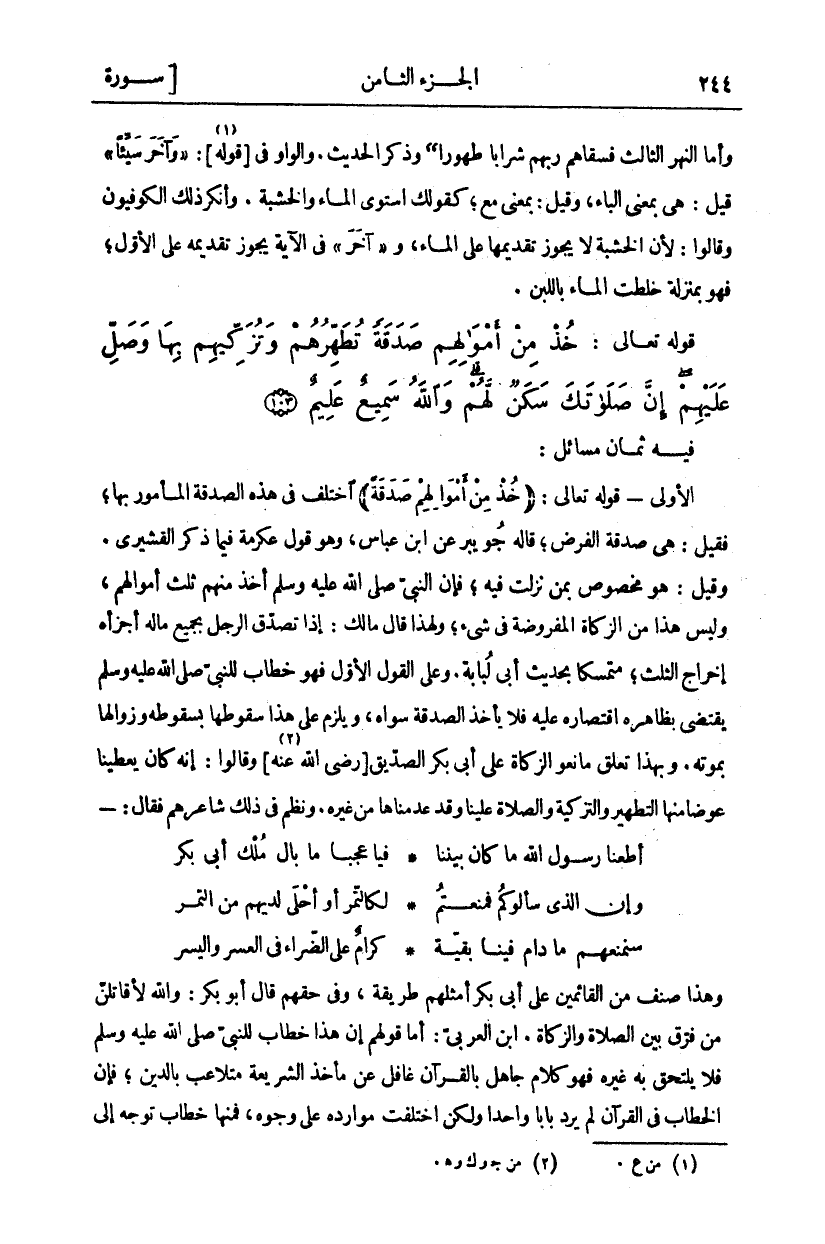 ٢٤٤ الجزء الثامن [ سورة
وأما النهر الثالث فسقاهم ربهم شرابا طهورا“ وذكر الحديث. والواو فى [قوله](١): «وَآخَرَ سَيِّئًا»
قيل : هى بمعنى الباء، وقيل : بمعنى مع؛ كقولك استوى الماء والخشبة . وأنكر ذلك الكوفيون
وقالوا : لأن الخشبة لا يجوز تقديمها على الماء، و « آخَرَ » فى الآية يجوز تقديمه على الأوّل؛
فهو بمنزلة خلطت الماء باللبن .
قوله تعالى : خُذْ مِنْ أَمْوَٰلِهِمْ صَدَقَةً تُطَهِّرُهُمْ وَتُزَكِّيهِم بِهَا وَصَلِّ
عَلَيْهِمْ ۖ إِنَّ صَلَوٰتَكَ سَكَنٌ لَّهُمْ ۗ وَٱللَّهُ سَمِيعٌ عَلِيمٌ ﴿١٠٣﴾
فيه ثمان مسائل :
الأولى — قوله تعالى : ﴿ خُذْ مِنْ أَمْوَالِهِمْ صَدَقَةً ﴾ ٱختلف فى هذه الصدقة المأمور بها؛
فقيل : هى صدقة الفرض؛ قاله جُويبر عن ابن عباس، وهو قول عكرمة فيما ذكر القشيرى .
وقيل : هو مخصوص بمن نزلت فيه ؛ فإن النبىّ صلى الله عليه وسلم أخذ منهم ثلث أموالهم ،
وليس هذا من الزكاة المفروضة فى شىء؛ ولهذا قال مالك : إذا تصدّق الرجل بجميع ماله أجزأه
إخراج الثلث؛ متمسكا بحديث أبى لُبابة. وعلى القول الأوّل فهو خطاب للنبىّ صلى الله عليه وسلم
يقتضى بظاهره اقتصاره عليه فلا يأخذ الصدقة سواه، ويلزم على هذا سقوطها بسقوطه وزوالها
بموته. وبهذا تعلق مانعو الزكاة على أبى بكر الصدّيق [رضى الله عنه](٢) وقالوا : إنه كان يعطينا
عوضا منها التطهير والتزكية والصلاة علينا وقد عدمناها من غيره. ونظم فى ذلك شاعرهم فقال: —
أطعنا رسول الله ما كان بيننا * فيا عجبا ما بال مُلْك أبى بكر
وإن الذى سألوكُم فمنعتمُ * لكالتّمر أو أحْلَى لديهم من التمر
سنمنعهم ما دام فينا بقيّة * كرامٌ على الضّراء فى العسر واليسر
وهذا صنف من القائمين على أبى بكر أمثلهم طريقة ، وفى حقهم قال أبو بكر : والله لأقاتلنّ
من فرّق بين الصلاة والزكاة . ابن العربىّ : أما قولهم إن هذا خطاب للنبىّ صلى الله عليه وسلم
فلا يلتحق به غيره فهو كلام جاهل بالقرآن غافل عن مأخذ الشريعة متلاعب بالدين ؛ فإن
الخطاب فى القرآن لم يرد بابا واحدا ولكن اختلفت موارده على وجوه، فمنها خطاب توجه إلى
(١) من ع . (٢) من ج و ك و ه .